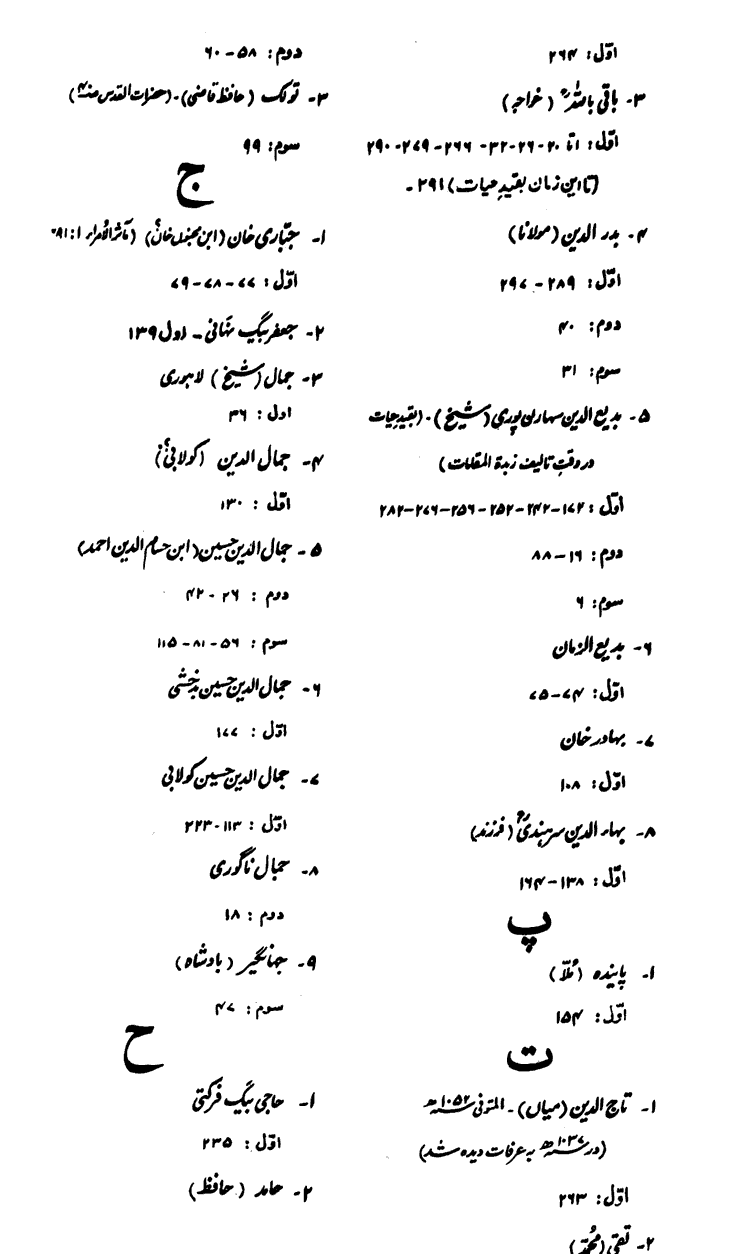 اوّل: ۲۶۴
۳- باقی باللہؒ (خواجہ)
اوّل: ۱ تا ۲۰-۲۶-۳۲-۲۶۶-۲۷۹-۲۹۰
(تا این زمان بقیدِ حیات) ۲۹۱-
۴- بدر الدین (مولانا)
اوّل: ۲۸۹-۲۹۷
دوم: ۴۰
سوم: ۳۱
۵- بدیع الدین سہارن پوری (شیخ)-(بقیدِ حیات
در وقتِ تالیف زبدۃ المقامات)
اوّل: ۱۷۲-۲۴۲-۲۵۲-۲۵۶-۲۷۶-۲۸۲
دوم: ۱۶-۸۸
سوم: ۶
۶- بدیع الزمان
اوّل: ۷۴-۷۵
۷- بہادر خان
اوّل: ۱۰۸
۸- بہاء الدین سرہندیؒ (فرزند)
اوّل: ۱۳۸-۱۶۴
پ
۱- پایندہ (مُلّا)
اوّل: ۱۵۴
ت
۱- تاج الدین (میاں)-المتوفی ۱۰۵۲ھ
(در ۱۰۳۷ھ بہ عرفات دیدہ شد)
اوّل: ۲۶۳
۲- تقی (محمّد)
دوم: ۵۸-۶۰
۳- تولک (حافظ قاضی)-(حضرات القدس ص)
سوم: ۹۹
ج
۱- جبّاری خان (ابن مجنوں خان؟) (مآثر الامراء ۱:
اوّل: ۷۷-۷۸-۷۹
۲- جعفر بیگ نہانی- اول ۱۳۹
۳- جمال (شیخ) لاہوری
اول: ۳۶
۴- جمال الدین (کولابی؟)
اوّل: ۱۳۰
۵- جمال الدین حسین (ابن حسام الدین احمد)
دوم: ۲۶-۴۲
سوم: ۵۶-۸۱-۱۱۵
۶- جمال الدین حسین بدخشی
اوّل: ۱۷۷
۷- جمال الدین حسین کولابی
اوّل: ۱۱۳-۲۲۳
۸- جمال ناگوری
دوم: ۱۸
۹- جہانگیر (بادشاہ)
سوم: ۴۷
ح
۱- حاجی بیگ فرکتی
اوّل: ۲۳۵
۲- حامد (حافظ)